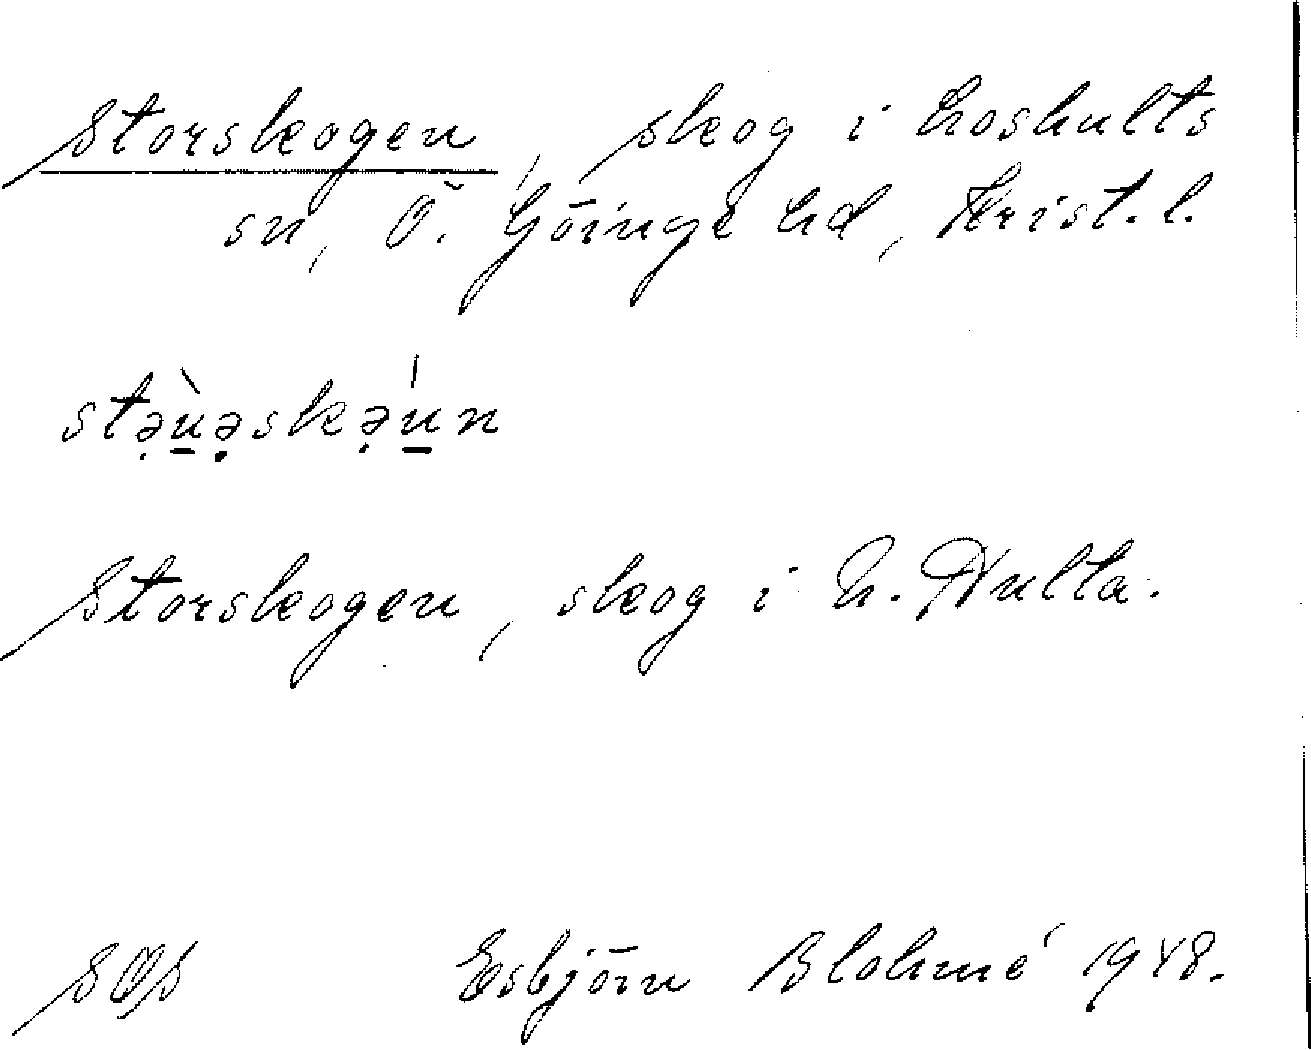 Storskogen, skog i Loshults
sn, Ö. Göinge hd, Krist. l.
stə̣ù̱ə̣skə̣ú̱n
Storskogen, skog i N. Hulta.
SOS Esbjörn Blohmé 1948.